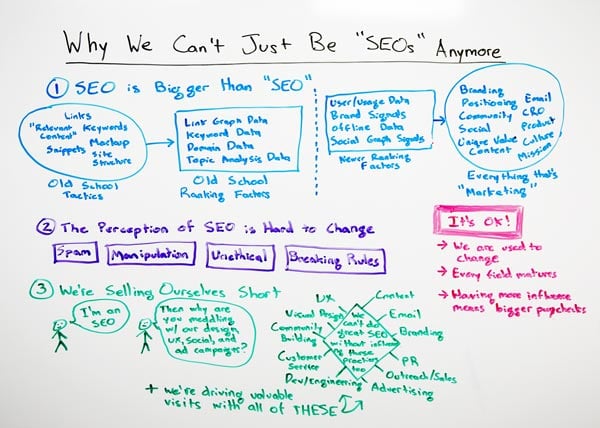 Why We Can't Just Be "SEOs" Anymore
1 SEO is Bigger than "SEO"
Links
"Relevant Keywords
Content" Markup
Snippets Site
Structure
Old School
Tactics
Link Graph Data
Keyword Data
Domain Data
Topic Analysis Data
Old School
Ranking Factors
User/Usage Data
Brand Signals
Offline Data
Social Graph Signals
Newer Ranking
Factors
Branding
Positioning Email
Community CRO
Social Product
Unique Value Culture
Content Mission
Everything that's
"Marketing"
2 The Perception of SEO is Hard to Change
Spam
Manipulation
Unethical
Breaking Rules
It's OK!
→ We are used to
change
→ Every field matures
→ Having more influence
means bigger paychecks
3 We're Selling Ourselves Short
I'm an
SEO
Then why are
you meddling
w/ our design,
UX, social, and
ad campaigns?
UX
Visual Design
Community
Building
Customer
Service
Dev/Engineering
Content
Email
Branding
PR
Outreach/Sales
Advertising
We
can't do
great SEO
without influencing
these
practices
too
+ we're driving valuable
visits with all of THESE